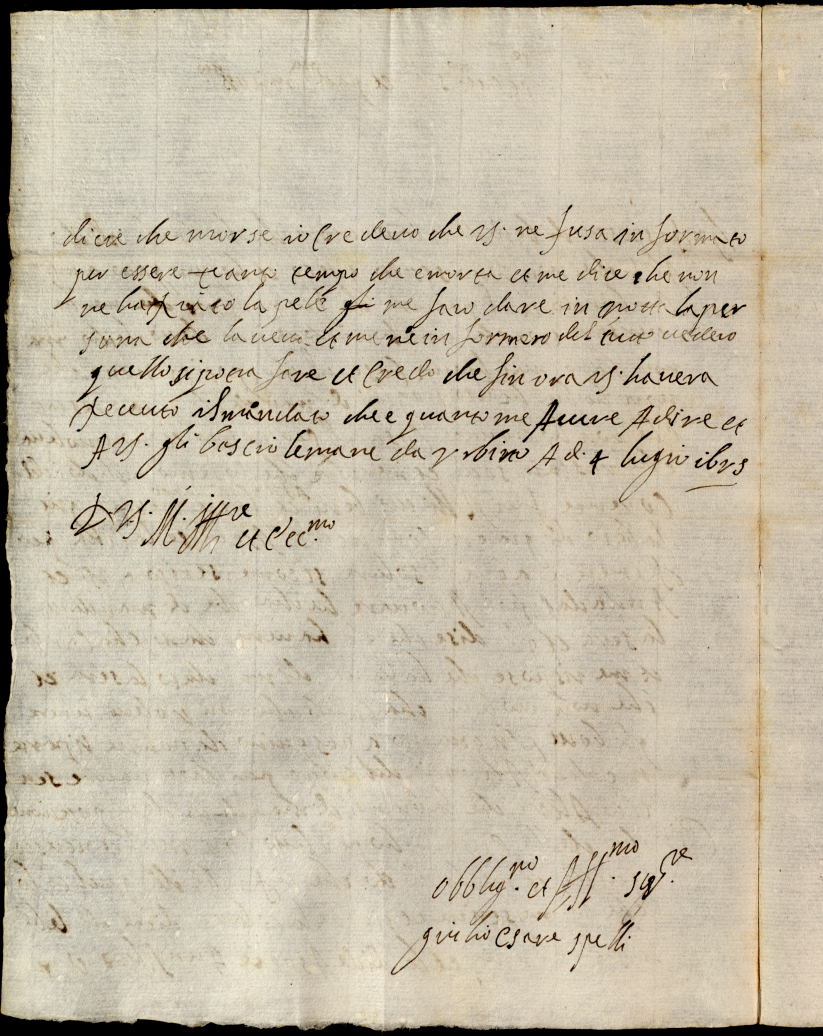 dicie che morse io Credevo che VS. ne fusa in formato
per essere tanto tempo che e morta et me dice che non
ne ha la pele me faro dare in notta la per
sona che la et me ne in formero del tuto vedero
quello si potra fare et Credo che fin ora VS. havera
receuto il mandato che e quanto me Acure A dire et
A VS. gli bascio le mane da Urbino A di 4 lugio
D VS. M. Ill.re et Ecc.mo
obblig.mo et Aff.mo
giulio Cesare spelli